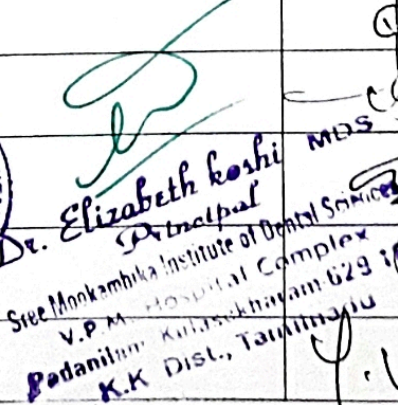 Dr. Elizabeth koshi MDS
Principal
Sree Mookambika Institute of Dental Sciences
V.P.M. Hospital Complex
Padanilam Kulasekharam 629
K.K Dist., Tamilnadu